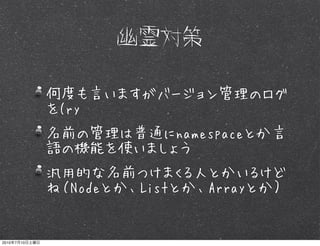 幽霊対策
何度も言いますがバージョン管理のログ
を(ry
名前の管理は普通にnamespaceとか言
語の機能を使いましょう
汎用的な名前つけまくる人とかいるけど
ね(Nodeとか、Listとか、Arrayとか)
2010年7月10日土曜日